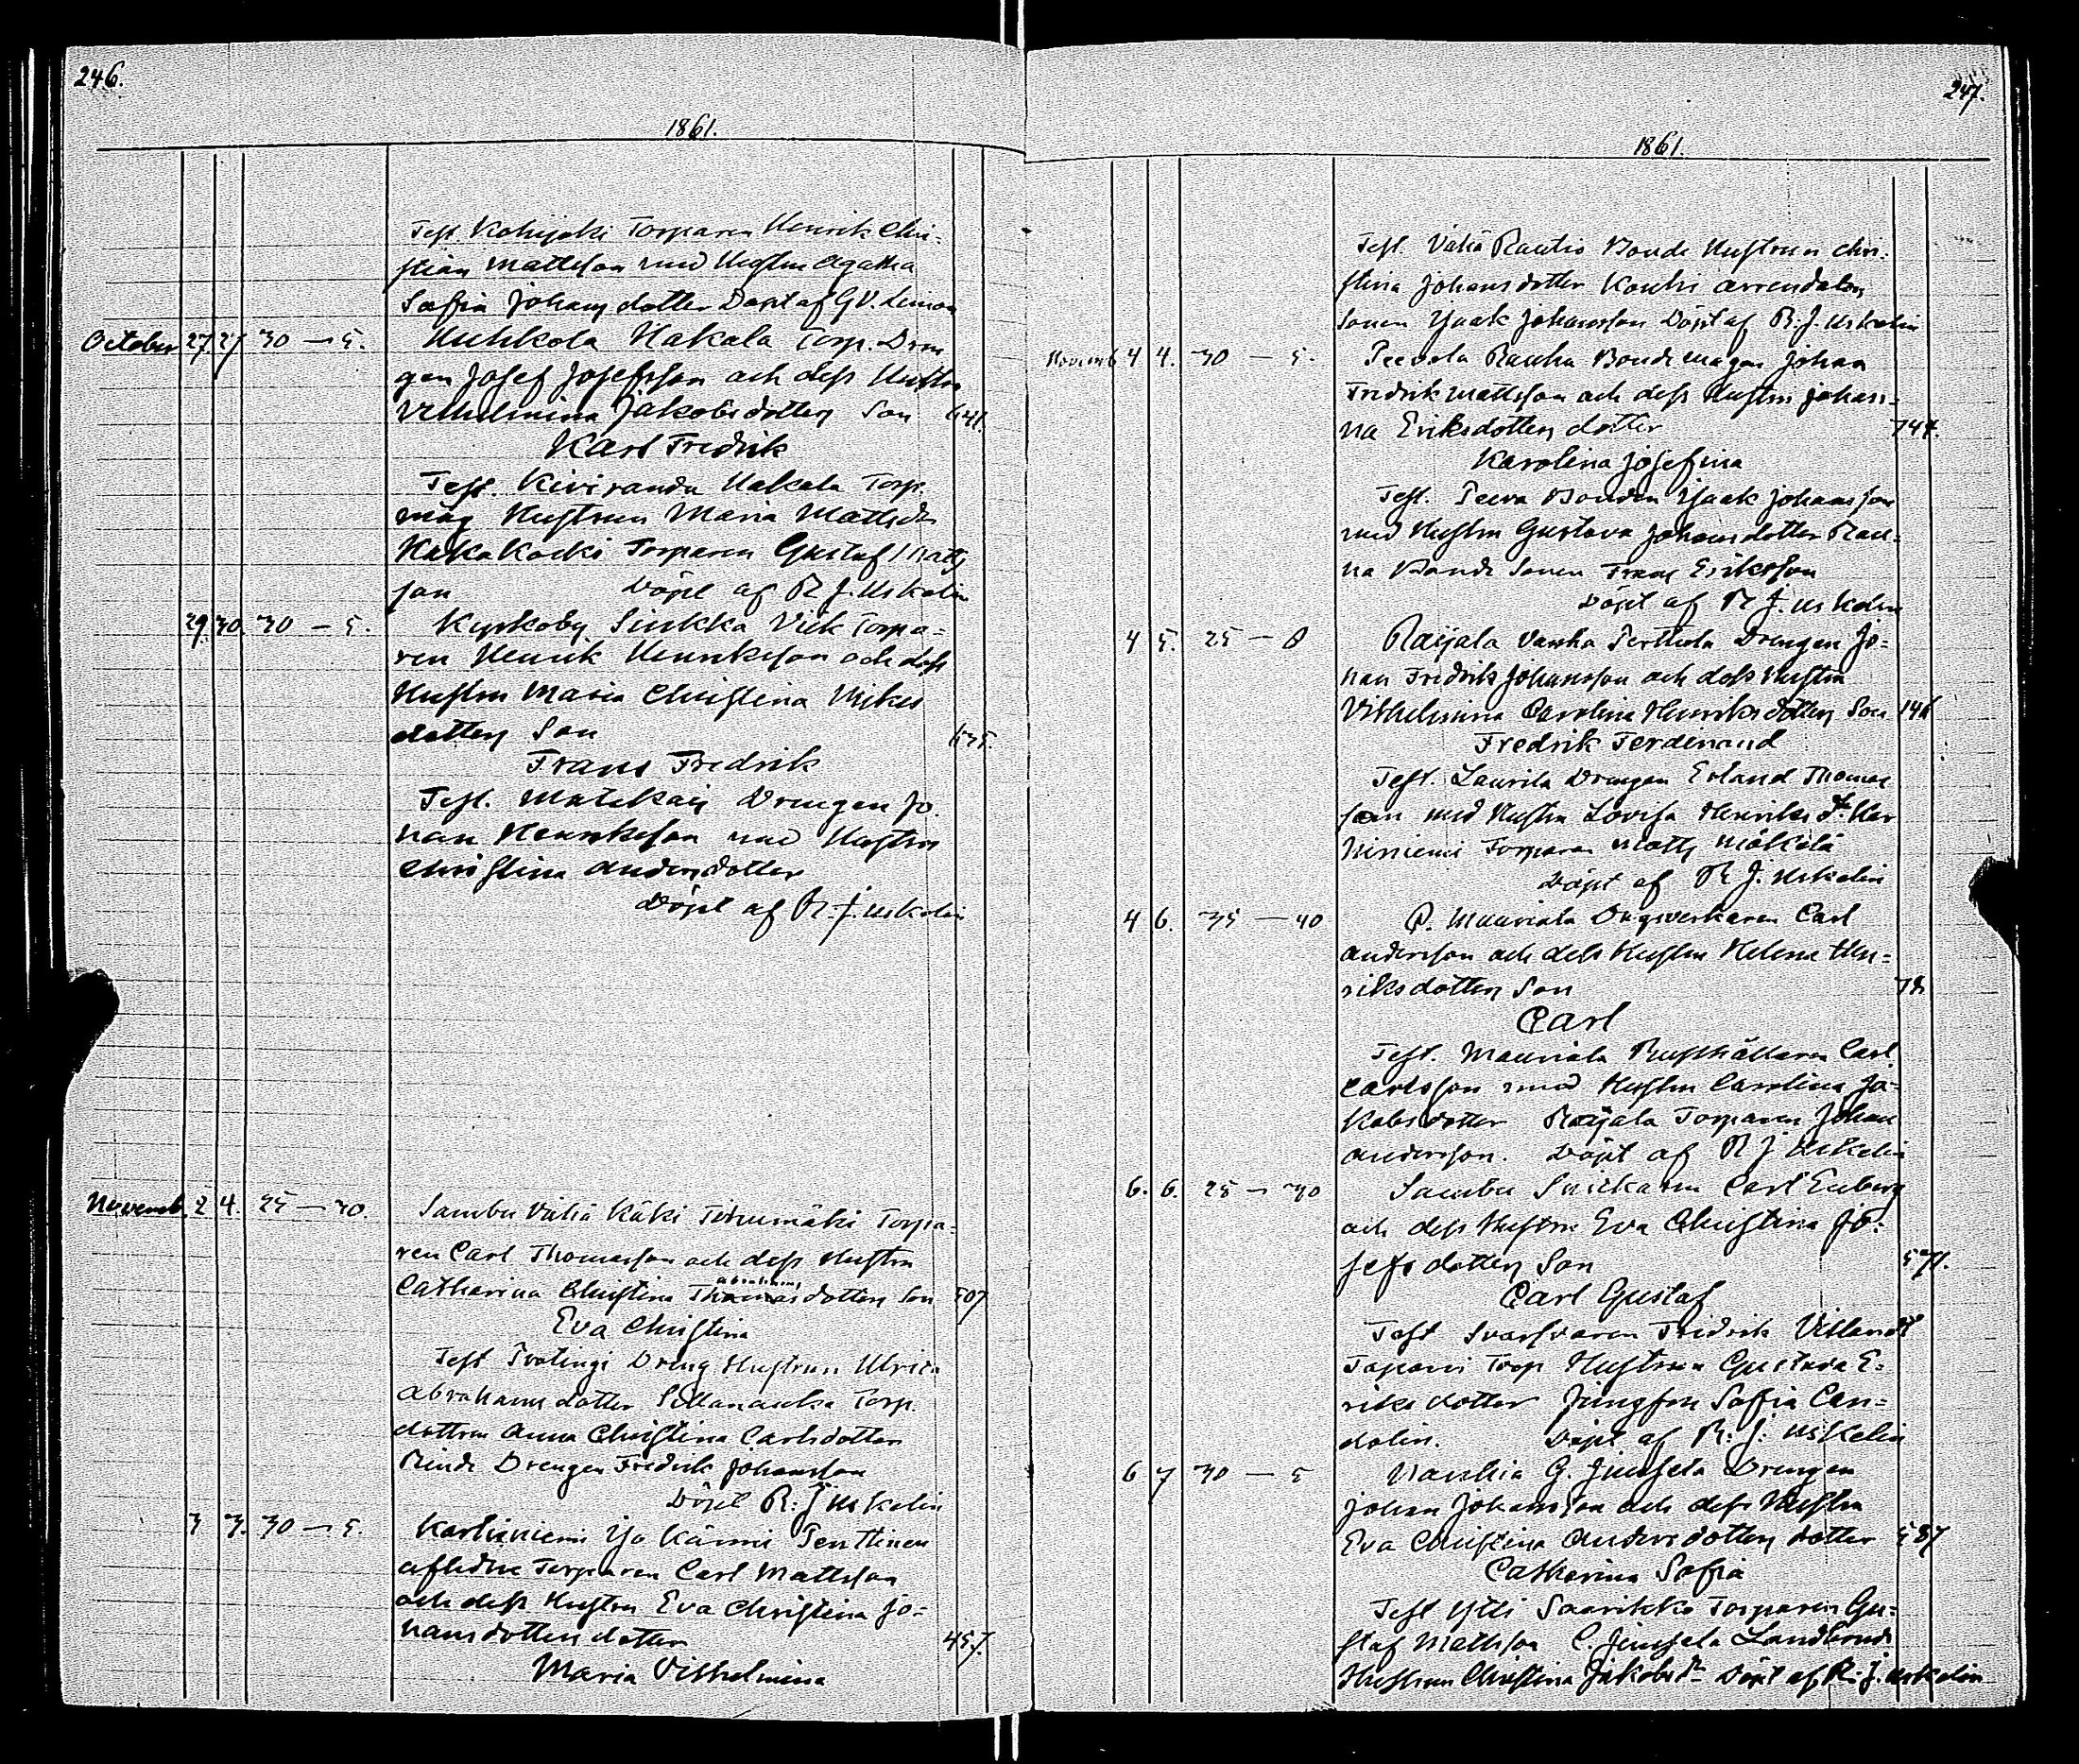 246.
1861.
Test. Torparen Henrik Chri-
stian Mattsson med Hustru Agatha
Sofia Johansdotter Döpt af G V. Lenion
October 27. 27. 30 — 5. Huhkola Hakala Torp. Dren
gen Josef Josefsson och dess Hustru
Vilhelmina Jakobsdotters Son 641.
Karl Fredrik
Test. Kiviranda Hakala Torp.
måg Hustrun Maria Mattsdr
Torparen Gustaf Matts
son Döpt af R J. Uskelin
29. 30. 30 — 5. Kyrkoby Sinkka Vick Torpa=
ren Henrik Henriksson och dess
Hustru Maria Christina Mikes
dotters Son 635.
Frans Fredrik
Test. Drengen Jo
han Henriksson med Hustru
Christina Andersdotter
Döpt af R. J. Uskelin
Novemb. 2 4. 25 — 30. Sambu Vähä Käki Torpa=
ren Carl Thomasson och dess Hustru
Abrahams
Catharina Christina Thomasdotters Son 507
Eva Christina
Test Dreng Hustrun Ulrica
Abrahamsdotter Torp.
dottren Anna Christina Carlsdotter
Drengen Fredrik Johansson
Döpt R: J Uskelin
3 3. 30 — 5. Karhiniemi Iso Kärmi Penttinen
aflidne Torparen Carl Mattsson
och dess Hustru Eva Christina Jo=
hansdotters dotter 457.
Maria Vilhelmina
247.
1861.
Test. Vähä Rautio Bonde Hustrun Chri-
stina Johansdotter Kouhi arrendators
Sonen Isaak Johansson Döpt af R. J. Uskelin
Novemb 4 4. 30 — 5. Rauha Bonde magen Johan
Fredrik Mattsson och dess Hustru Johan=
na Eriksdotters dotter 744.
Karolina Josefina
Test. Bonden Isaak Johansson
med Hustru Gustava Johansdotter Rau=
ha Bonde Sonen Frans Eriksson
Döpt af R J. Uskelin
4 5. 25 — 0 Raijala Vanha Perttula Drengen Jo=
han Fredrik Johansson och dess Hustru
Vilhelmina Carolina Henriksdotters Son 146
Fredrik Ferdinand
Test. Laurila Drengen Erland Thomas
son med Hustru Lovisa Henriks dr. Har
hiniemi Torparen Matts Mäkelä
Döpt af R J. Uskelin
4 6. 35 — 40 P. Mauriala Dagsverkaren Carl
Andersson och dess Hustru Helena Hen=
riksdotters Son
Carl
Test. Mauriala Rusthållaren Carl
Carlsson med Hustru Carolina Ja=
kobsdotter Raijala Torparen Johan
Andersson. Döpt af R J Uskelin
6. 6. 25 — 30 Sambu Snickaren Carl Enberg
och dess Hustru Eva Christina Jo=
sefsdotters Son 571.
Carl Gustaf
Test Svarfvaren Fredrik Villandt
Torp Hustrun Gustava E=
riksdotter Jungfru Sofia Can=
dolin. Döpt af R: J: Uskelin
6 7 30 — 5 G. Junsela Drengen
Johan Johansson och dess Hustru
Eva Christina Andersdotters dotter 587
Catharina Sofia
Test Ylli Saarikko Torparen Gu=
staf Mattsson L. Junsela Landbonde
Hustrun Christina Jakobs dr Döpt af R: J. Uskelin